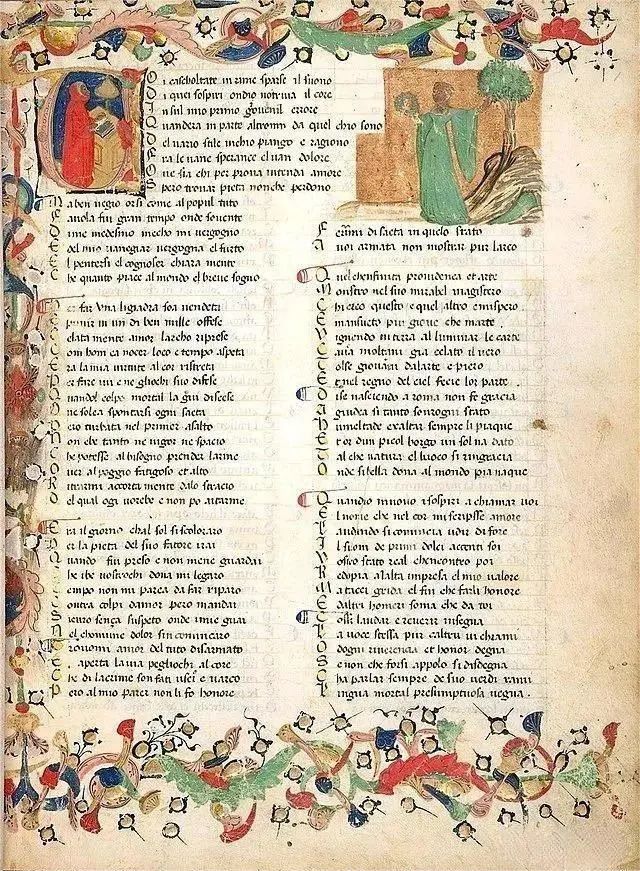 O i cascholtate in rime sparse il suono
D i quei sospiri ondio notriva il core
I n sul mio primo giovenil errore
Q uandera in parte altromo da quel chio sono
D el vario stile inchio piango e ragiono
F ra le vane sperance el van dolore
O ve sia chi per prova intenda amore
S pero trovar pieta nonche perdono
M a ben vegio orsi come al popul tuto
F avola fui gran tempo onde sovente
D i me medesmo mecho mi vergogno
E del mio vanegiar vergogna el fructo
E l pentersi el cognoser chiara mente
C he quanto piace al mondo el breve sogno
P er far una ligiadra soa vendeta
E punir in un di ben mille offese
C elata mente amor larcho riprese
C om hom ca nocer loco e tempo aspeta
E ra la mia virtute al cor ristreta
P er fare ivi e ne gliochi sue difese
Q uandel colpo mortal la giu discese
O ve solea spontarsi ogni saeta
P ero turbata nel primer asalto
N on ebe tanto ne vigor ne spacio
C he potesse al bisogno prender larme
O ver al poggio fatigoso et alto
R itrarmi accorta mente dalo stracio
D el qual ogi vorebe e non po aitarme
E ra il giorno chal sol si scoloraro
P er la pieta del suo fatore irai
Q uando fui preso e non mene guardai
C he ibe vostrochi dona mi legaro
T empo non mi parea da far riparo
C ontra colpi damor pero mandai
S ecuro senza suspeto onde imie guai
N el chomune dolor sin comincaro
T rovomi amor del tuto disarmato
E t aperta la via pegliochi al core
C he di lacrime son fati usci e varco
P ero al mio parer non li fo honore
F erirmi di saeta in quelo stato
A voi armata non mostrar pur larco
Q uel chenfinita providenca et arte
M onstro nel suo mirabel magistero
C hi creo questo e quel altro emispero
E mansueto piu giove che marte
V egnendo in terra al luminar le carte
C avia moltani gia celato il vero
T olse giovanni dalarte e piero
E t nel regno del ciel fece lor parte
D ise nascendo a roma non fe gracia
A giudea si tanto sovrogni stato
H umeltade exaltar sempre li piaque
E t or dun picol borgo un sol na dato
T al che natura el luoco si ringracia
O nde si bella dona al mondo pia naque
Q uandio movo i sospiri a chiamar voi
E l nome che nel cor mi scripsse amore
L audando si comincia udir di fore
I l suon de primi dolci accenti soi
V ostro stato real chencontro poi
R adopia alalta impresa el mio valore
M a taci grida el fin che farli honore
E daltri homeri soma che da toi
C ossi laudar e reverir insegna
L a voce stessa pur caltrui vi chiami
O dogni riverencia et honor degna
S e non che forsi appolo si disdegna
C ha parlar sempre de suo verdi rami
L ingua mortal presumptuosa vegna